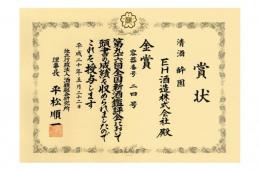 賞状
清酒 酔園
EH酒造株式会社殿
容器番号 二四号
金賞
第九六回全国新酒鑑評会において
頭書の成績を収められましたので
これを授与します
平成二十年五月二十二日
独立行政法人酒類総合研究所
理事長 平松順一